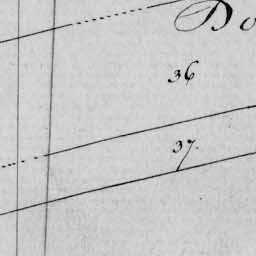 Do
36
37.